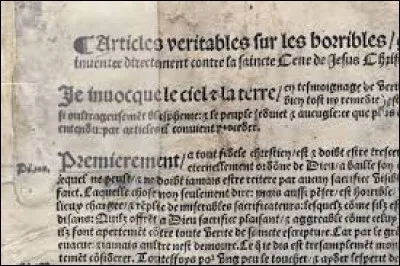 ¶Articles veritables sur les horribles/
inventez directement contre la saincte Cene de Jesus Chri
Je inuocque le ciel & la terre/ en tesmoignage de Veri
bien tost ny remedie
si oultrageusement blasphemé: & le peuple seduict & aueugle: ce que plus
entendu: par articles il conuient proceder.
Premierement/ a tout fidele chrestien/ est & doibt estre
eternellement ordōne de Dieu/ a baille son
lequel ne peult/ & ne doibt iamais estre reitere par aucun sacrifice Visibl
faict. Laquelle chose non seulement dire: mais aussi pēser/ est horrible
lieu change/ & réplie de miserables sacrificateurs: lesquelz cōe silz est
disans: Quilz offrēt a Dieu sacrifice plaisant/ & aggreable cōme celuy
ilz sont apertemēt cōtre toute Verite de saincte escripture. Car par le grā
euacue: & iamais aultre nest demoure. Ce q ie dis est tresamplemēt mon
temēt cōsiderer. Toutesfoys po Vng peu le toucher/ & ayder lesperit de